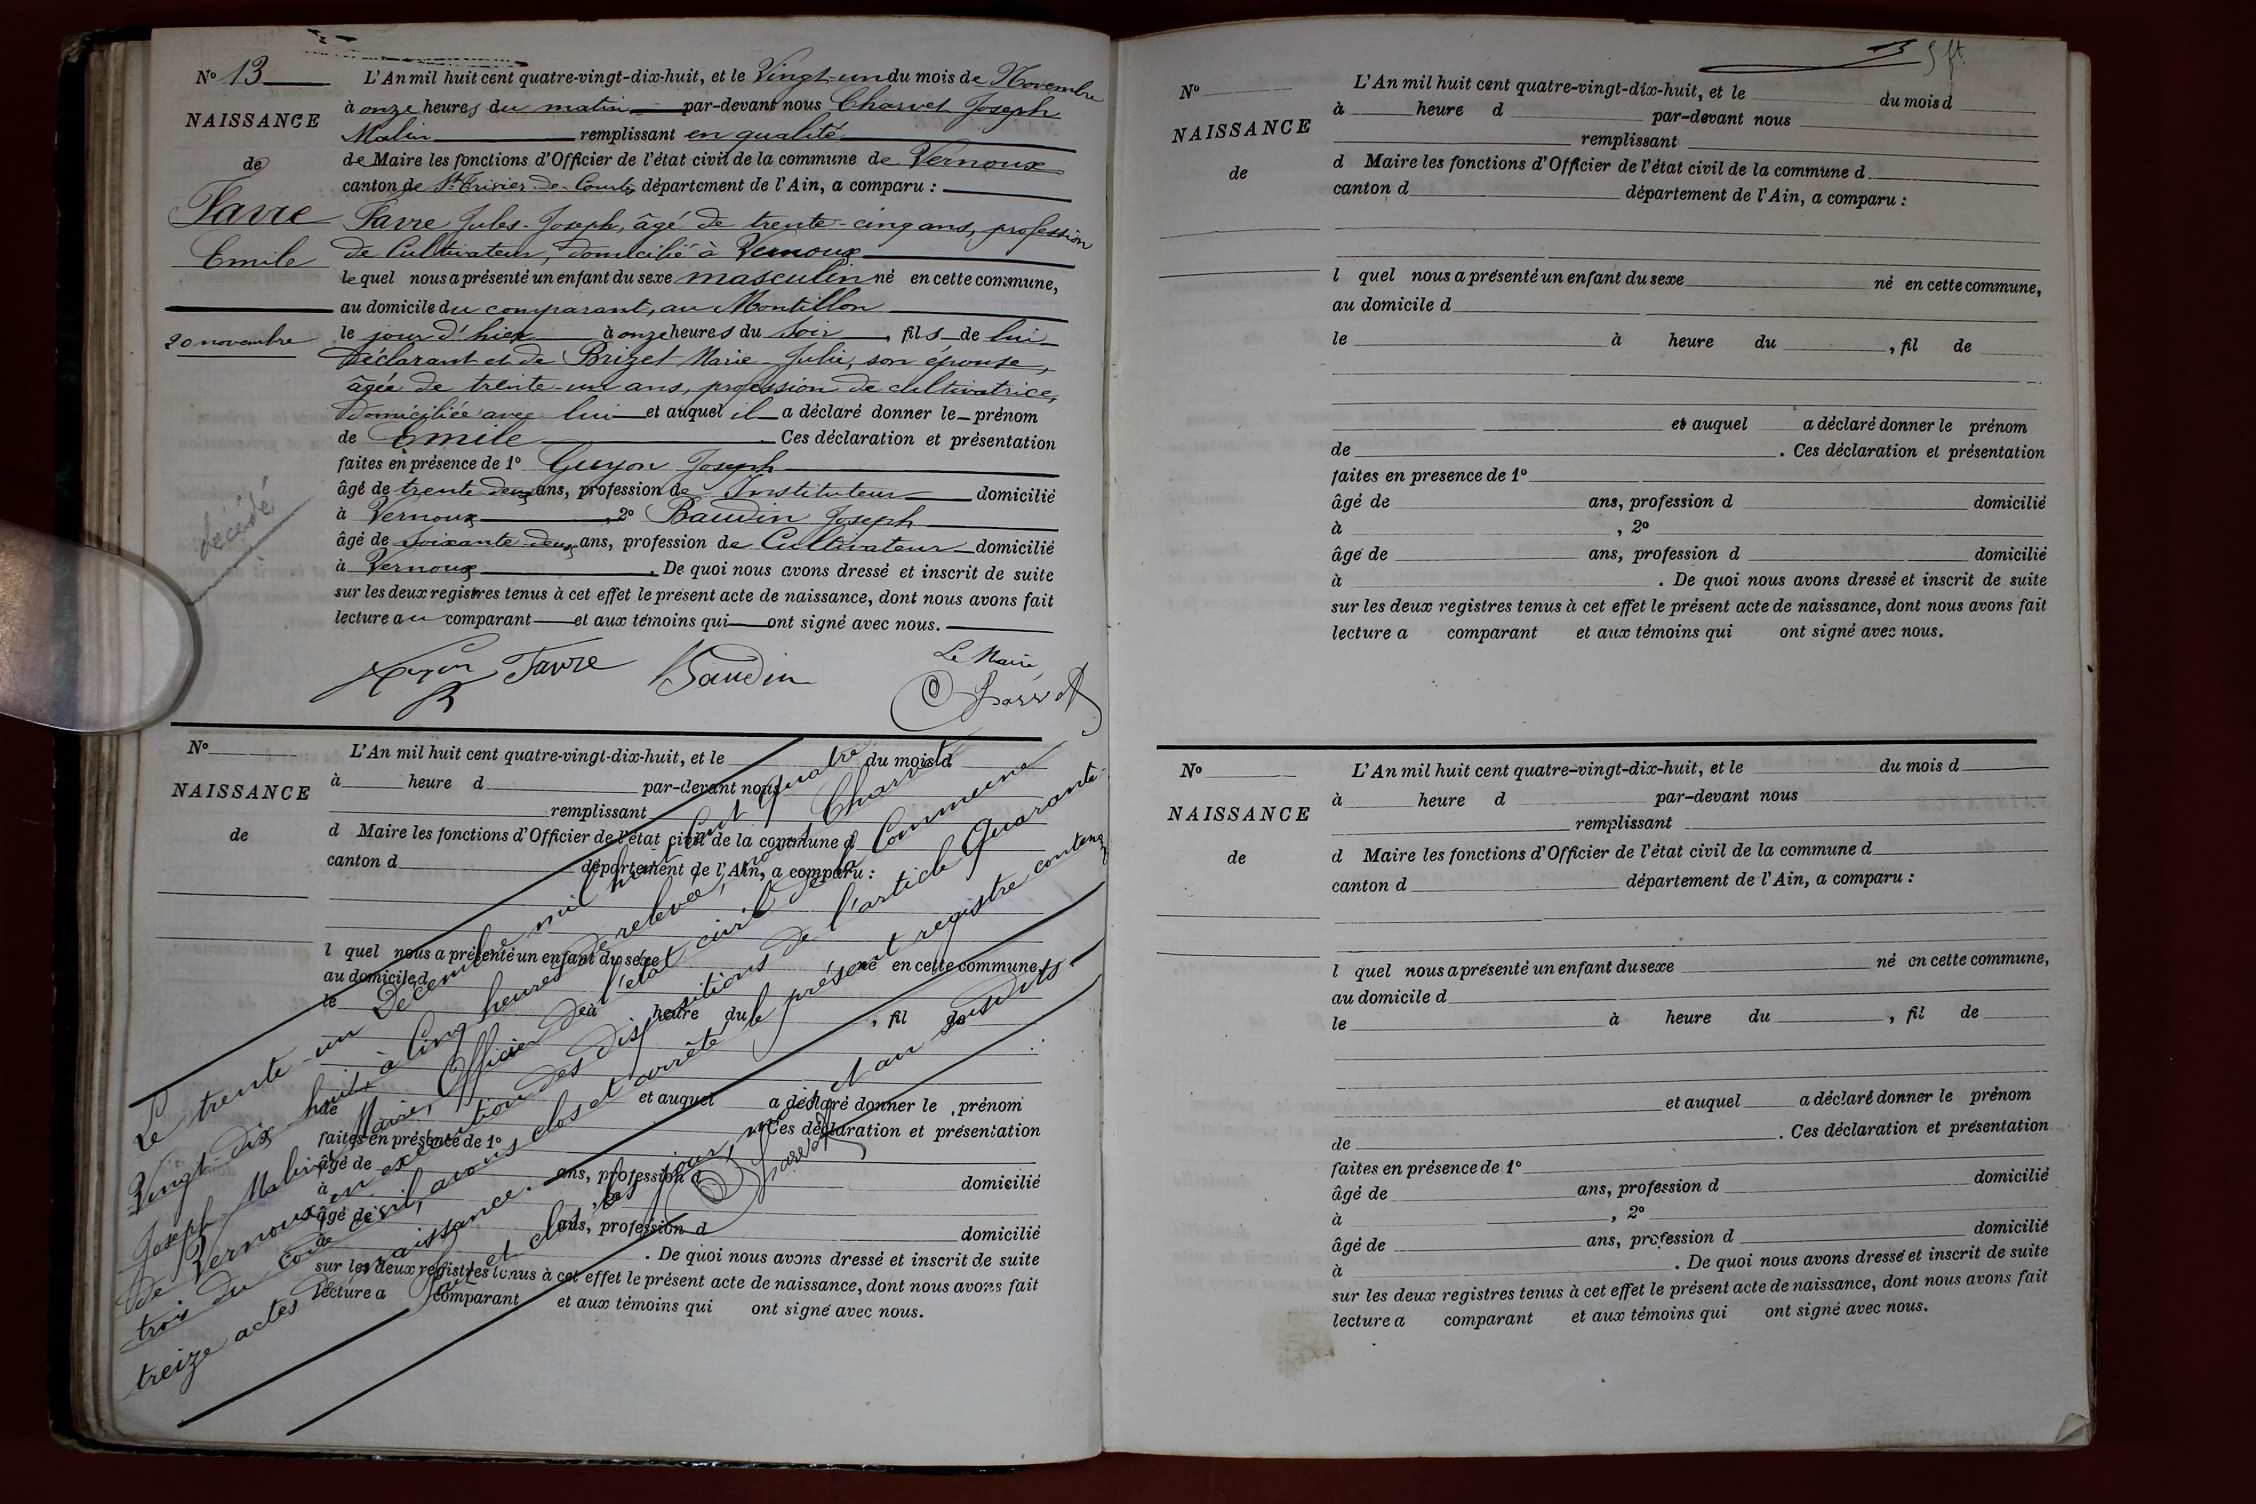 N° 13
NAISSANCE
de
Favre
Emile
20 novembre
décédé
L'An mil huit cent quatre-vingt-dix-huit, et le Vingt-un du mois de Novembre
à onze heures du matin par-devant nous Charvet Joseph
Malin remplissant en qualité
de Maire les fonctions d'Officier de l'état civil de la commune de Vernoux
canton de St Trivier-de-Courtes département de l'Ain, a comparu :
Favre Jules-Joseph, âgé de trente-cinq ans, profession
de Cultivateur, domicilié à Vernoux
lequel nous a présenté un enfant du sexe masculin né en cette commune,
au domicile du comparant, au Montillon
le jour d'hier à onze heures du soir, fils de lui
déclarant et de Brizet Marie-Julie, son épouse,
âgée de trente-un ans, profession de cultivatrice,
domiciliée avec lui et auquel il a déclaré donner le prénom
de Emile Ces déclaration et présentation
faites en présence de 1° Guyon Joseph
âgé de trente deux ans, profession de Instituteur domicilié
à Vernoux, 2° Baudin Joseph
âgé de soixante deux ans, profession de Cultivateur domicilié
à Vernoux. De quoi nous avons dressé et inscrit de suite
sur les deux registres tenus à cet effet le présent acte de naissance, dont nous avons fait
lecture au comparant et aux témoins qui ont signé avec nous.
Guyon Favre Baudin Le Maire
Charvet
N°
NAISSANCE
de
L'An mil huit cent quatre-vingt-dix-huit, et le du mois d
à heure d par-devant nous
remplissant
d Maire les fonctions d'Officier de l'état civil de la commune d
canton d département de l'Ain, a comparu :
l quel nous a présenté un enfant du sexe né en cette commune,
au domicile d
le à heure du , fil de
et auquel a déclaré donner le prénom
de Ces déclaration et présentation
faites en présence de 1°
âgé de ans, profession d domicilié
à
âgé de ans, profession d domicilié
à . De quoi nous avons dressé et inscrit de suite
sur les deux registres tenus à cet effet le présent acte de naissance, dont nous avons fait
lecture a comparant et aux témoins qui ont signé avec nous.
Le trente-un Décembre mil huit cent quatre
Vingt-dix huit, à Cinq heures de relevée, nous Charvet
Joseph Malin, Maire, Officier de l'état civil de la Commune
de Vernoux, en exécution des dispositions de l'article Quarante-
trois du code civil, avons clos et arrêté le présent registre contenant
treize actes de naissance.
Fait et clos les jour, mois et an susdits
Charvet
N°
NAISSANCE
de
L'An mil huit cent quatre-vingt-dix-huit, et le du mois d
à heure d par-devant nous
remplissant
d Maire les fonctions d'Officier de l'état civil de la commune d
canton d département de l'Ain, a comparu :
l quel nous a présenté un enfant du sexe né en cette commune,
au domicile d
le à heure du , fil de
et auquel a déclaré donner le prénom
de . Ces déclaration et présentation
faites en presence de 1°
âgé de ans, profession d domicilié
à , 2°
âgé de ans, profession d domicilié
à . De quoi nous avons dressé et inscrit de suite
sur les deux registres tenus à cet effet le présent acte de naissance, dont nous avons fait
lecture a comparant et aux témoins qui ont signé avec nous.
N°
NAISSANCE
de
L'An mil huit cent quatre-vingt-dix-huit, et le du mois d
à heure d par-devant nous
remplissant
d Maire les fonctions d'Officier de l'état civil de la commune d
canton d département de l'Ain, a comparu :
l quel nous a présenté un enfant du sexe né en cette commune,
au domicile d
le à heure du , fil de
et auquel a déclaré donner le prénom
de . Ces déclaration et présentation
faites en présence de 1°
âgé de ans, profession d domicilié
à , 2°
âgé de ans, profession d domicilié
à . De quoi nous avons dressé et inscrit de suite
sur les deux registres tenus à cet effet le présent acte de naissance, dont nous avons fait
lecture a comparant et aux témoins qui ont signé avec nous.